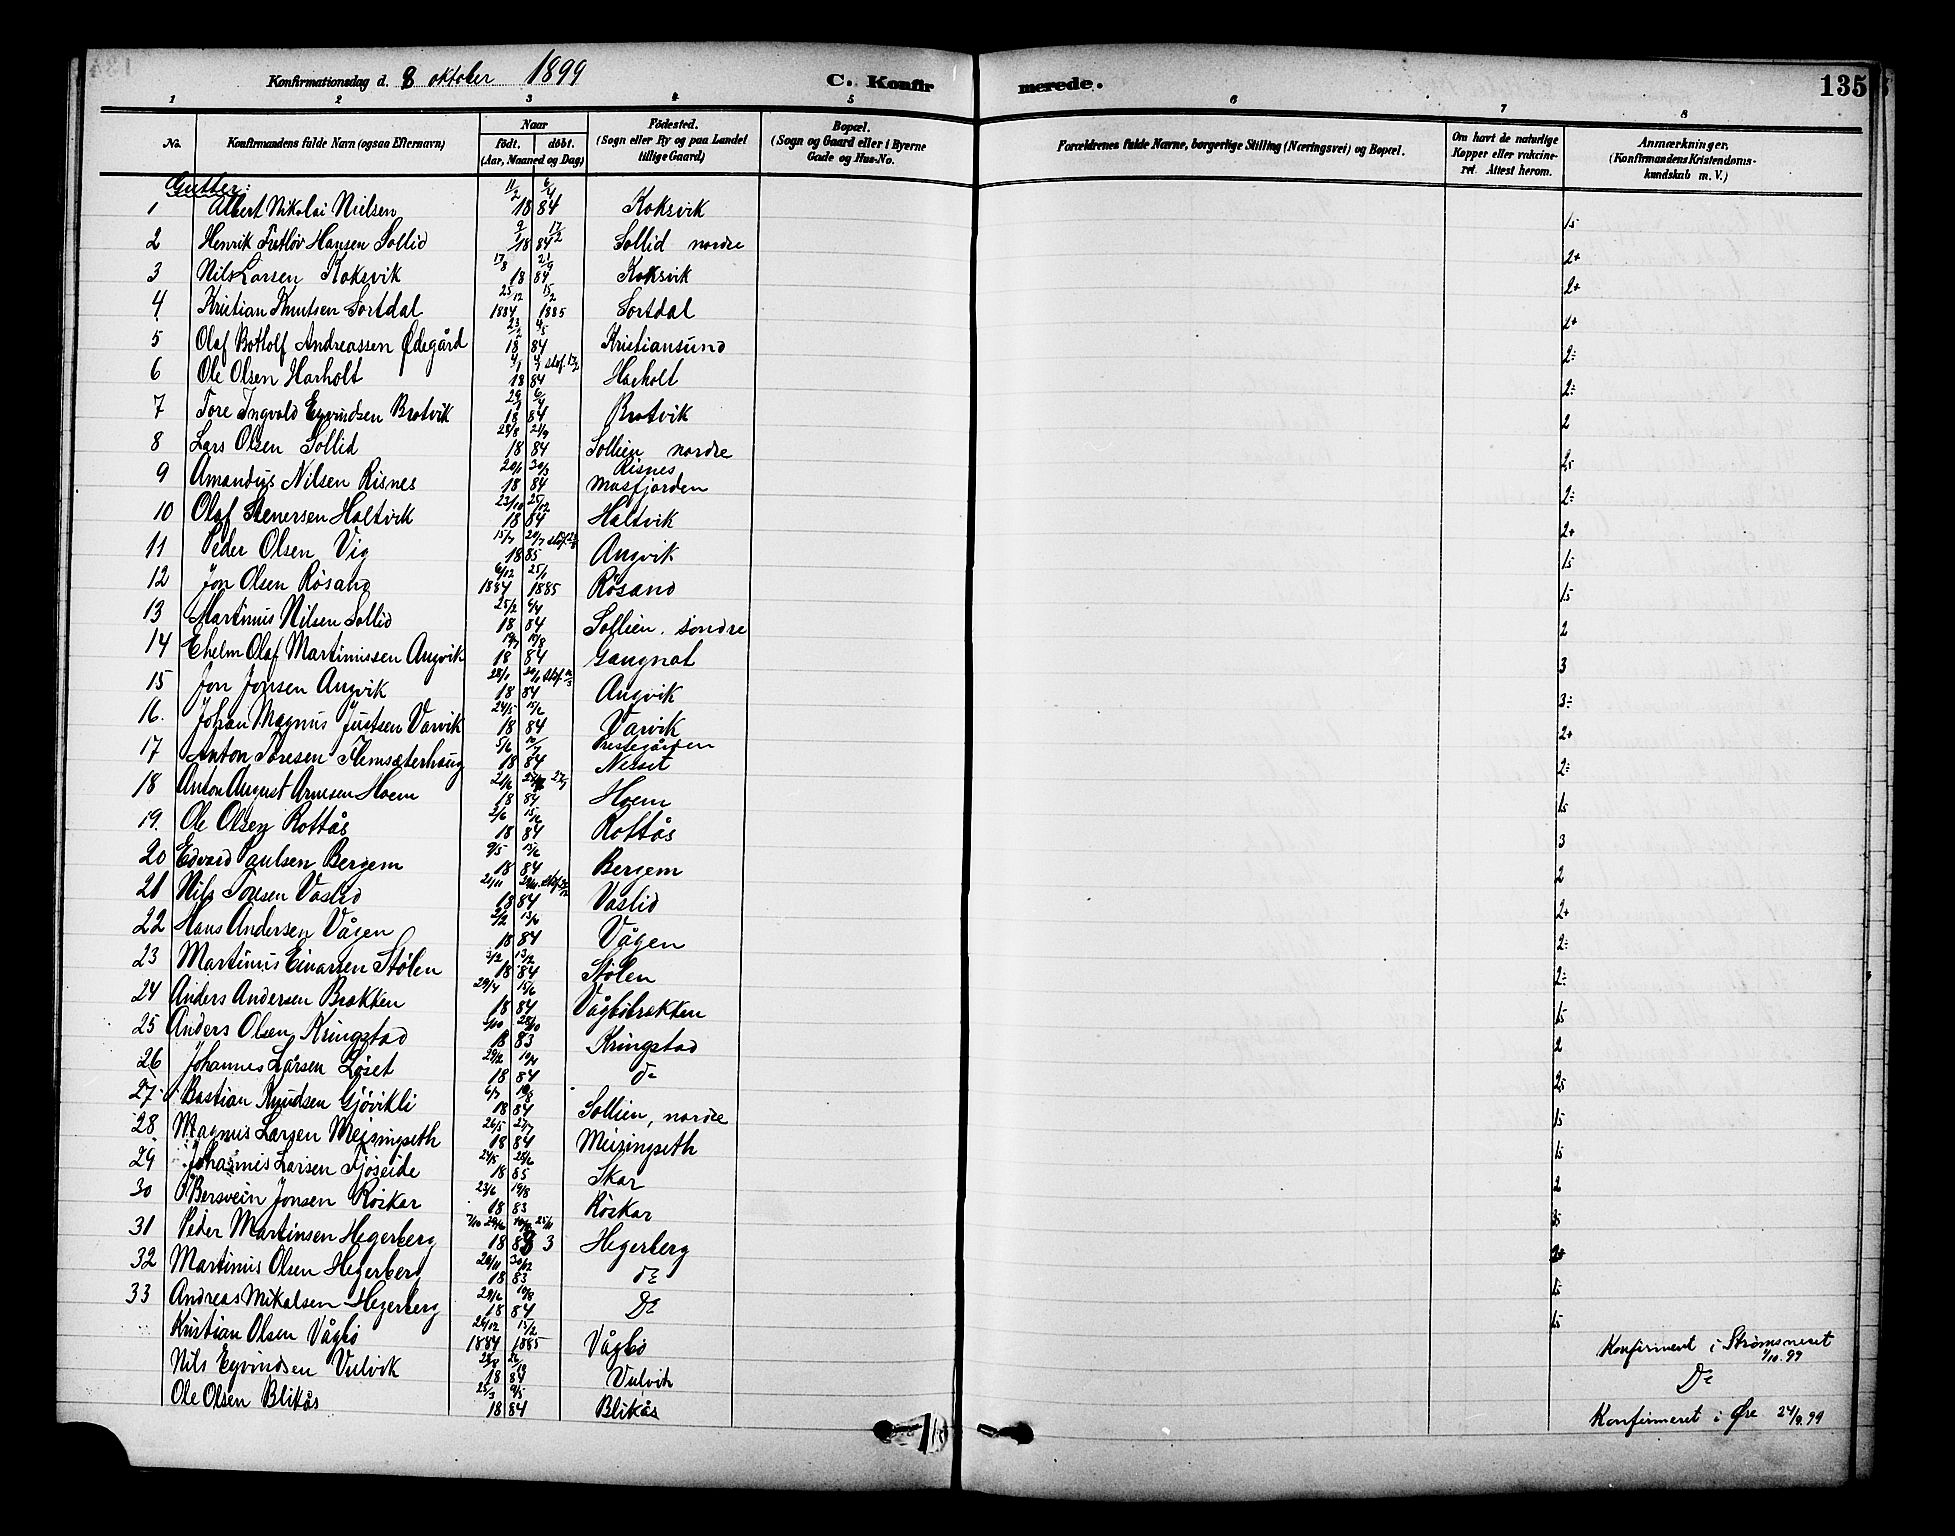 Konfirmationsdag d. 8 oktober 1899
C. Konfirmerede.
135
1 2 3 4 5 6 7 8
No.
Konfirmandens fulde Navn (ogsaa Efternavn)
Naar født. døbt. (Aar, Maaned og Dag)
Fødested. (Sogn eller By og paa Landet tillige Gaard)
Bopæl. (Sogn og Gaard eller i Byerne Gade og Hus-No.
Forældrenes fulde Navne, borgerlige Stilling (Næringsvei) og Bopæl.
Om havt de naturlige Kopper eller vakcineret. Attest herom.
Anmærkninger. (Konfirmandens Kristendomskundskab m. V.)
Gutter:
1 Albert Nikolai Nielsen 11/2 6/4 1884 Koksvik 15
2 Henrik Hansen Sollid 1884 Sollid nordre 2+
3 Nils Larsen Koksvik 17/8 21/9 1884 Koksvik 2+
4 Kristian Knutsen Sortdal 25/12 1884 15/2 1885 Sortdal 2+
5 Olaf Bottolf Andreassen Ødegård 1884 Kristiansund 2-
6 Ole Olsen Harholt 1884 Harholt 2-
7 Tore Ingvald Eyvindsen Brotvik 1884 Brotvik 2
8 Lars Olsen Sollid 28/8 21/9 1884 Sollien nordre 25
9 Amandus Nilsen Risnes 20/1 30/3 1884 Risnes Masfjorden 2-
10 Olaf Stenersen Holtvik 23/10 25/12 1884 Holtvik 2+
11 Peder Olsen Vig 15/7 20/7 1885 Angvik 15
12 Jon Olsen Rösand 6/12 1884 25/1 1885 Rösand 15
13 Martinus Nilsen Sollid 25/2 6/4 1884 Sollien. söndre 2
14 Ehelm Olaf Martinussen Angvik 1884 Gangnat 3
15 Jon Jonsen Angvik 1884 Angvik 3-
16. Johan Magnus Justsen Varvik 24/5 15/6 1884 Varvik 2+
17 Anton Toresen Flemsæterhaug 5/6 1884 Prestegården Nesset 2-
18 Anton August Arnesen Hoem 21/6 1884 Hoem 15
19. Ole Olsen Rottås 2/6 15/6 1884 Rottås 3
20 Edvard Paulsen Bergem 9/5 15/6 1884 Bergem 2
21 Nils Tonsen Vaslid 1884 Vaslid 2+
22 Hans Andersen Vågen 1884 Vågen 2-
23 Martinus Einarsen Stölen 1884 Stölen 2-
24 Anders Andersen Brakken 29/4 15/6 1884 Vågböbrakken 15
25 Anders Olsen Kringstad 28/10 1883 Kringstad 2
26 Johannes Larsen Löset 1884 do 25
27 Bastian Knudsen Gjövikli 6/7 1884 Sollien, nordre 15
28 Magnus Larsen Meisingseth 26/5 27/7 1884 Meisingseth 15
29 Johannes Larsen Fjöseide 24/5 28/6 1885 Skar 2
30 Bersvein Jonsen Röskar 23/6 19/8 1883 Röskar
31 Peder Martinsen Hegerberg 1883 Hegerberg
32 Martinus Olsen Hegerberg 30/12 1883 do 15
33 Andreas Mikalsen Hegerberg 29/6 10/8 1884 Do 15
Kristian Olsen Vågbö 26/12 1884 15/2 1885 Vågbö Konfirmeret i Strömsneset 1/10.99
Nils Eyvindsen Vulvik 1884 Vulvik Do
Ole Olsen Blikås 25/3 9/5 1884 Blikås Konfirmeret i Øre 24/9.99